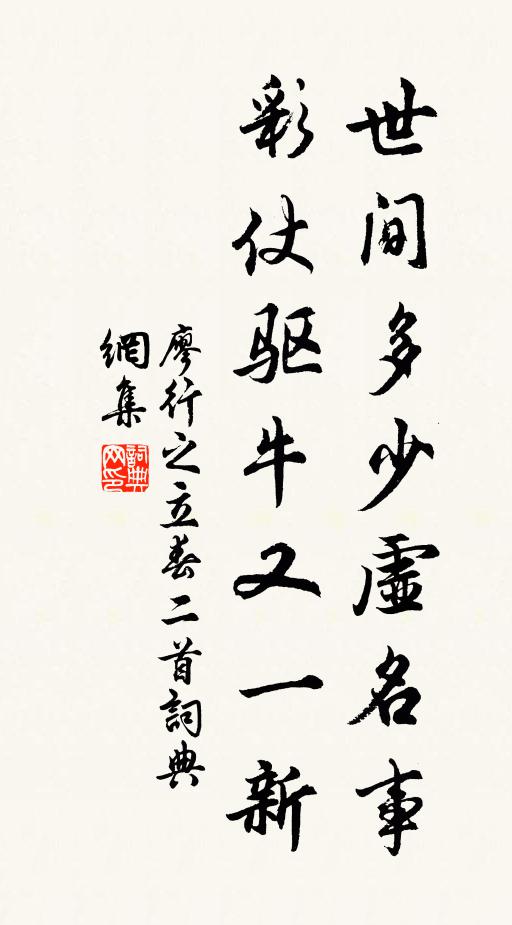 世间多少虛名事
彩仗驱牛又一新
廖行之立春二首詞典
網集
詞典网印